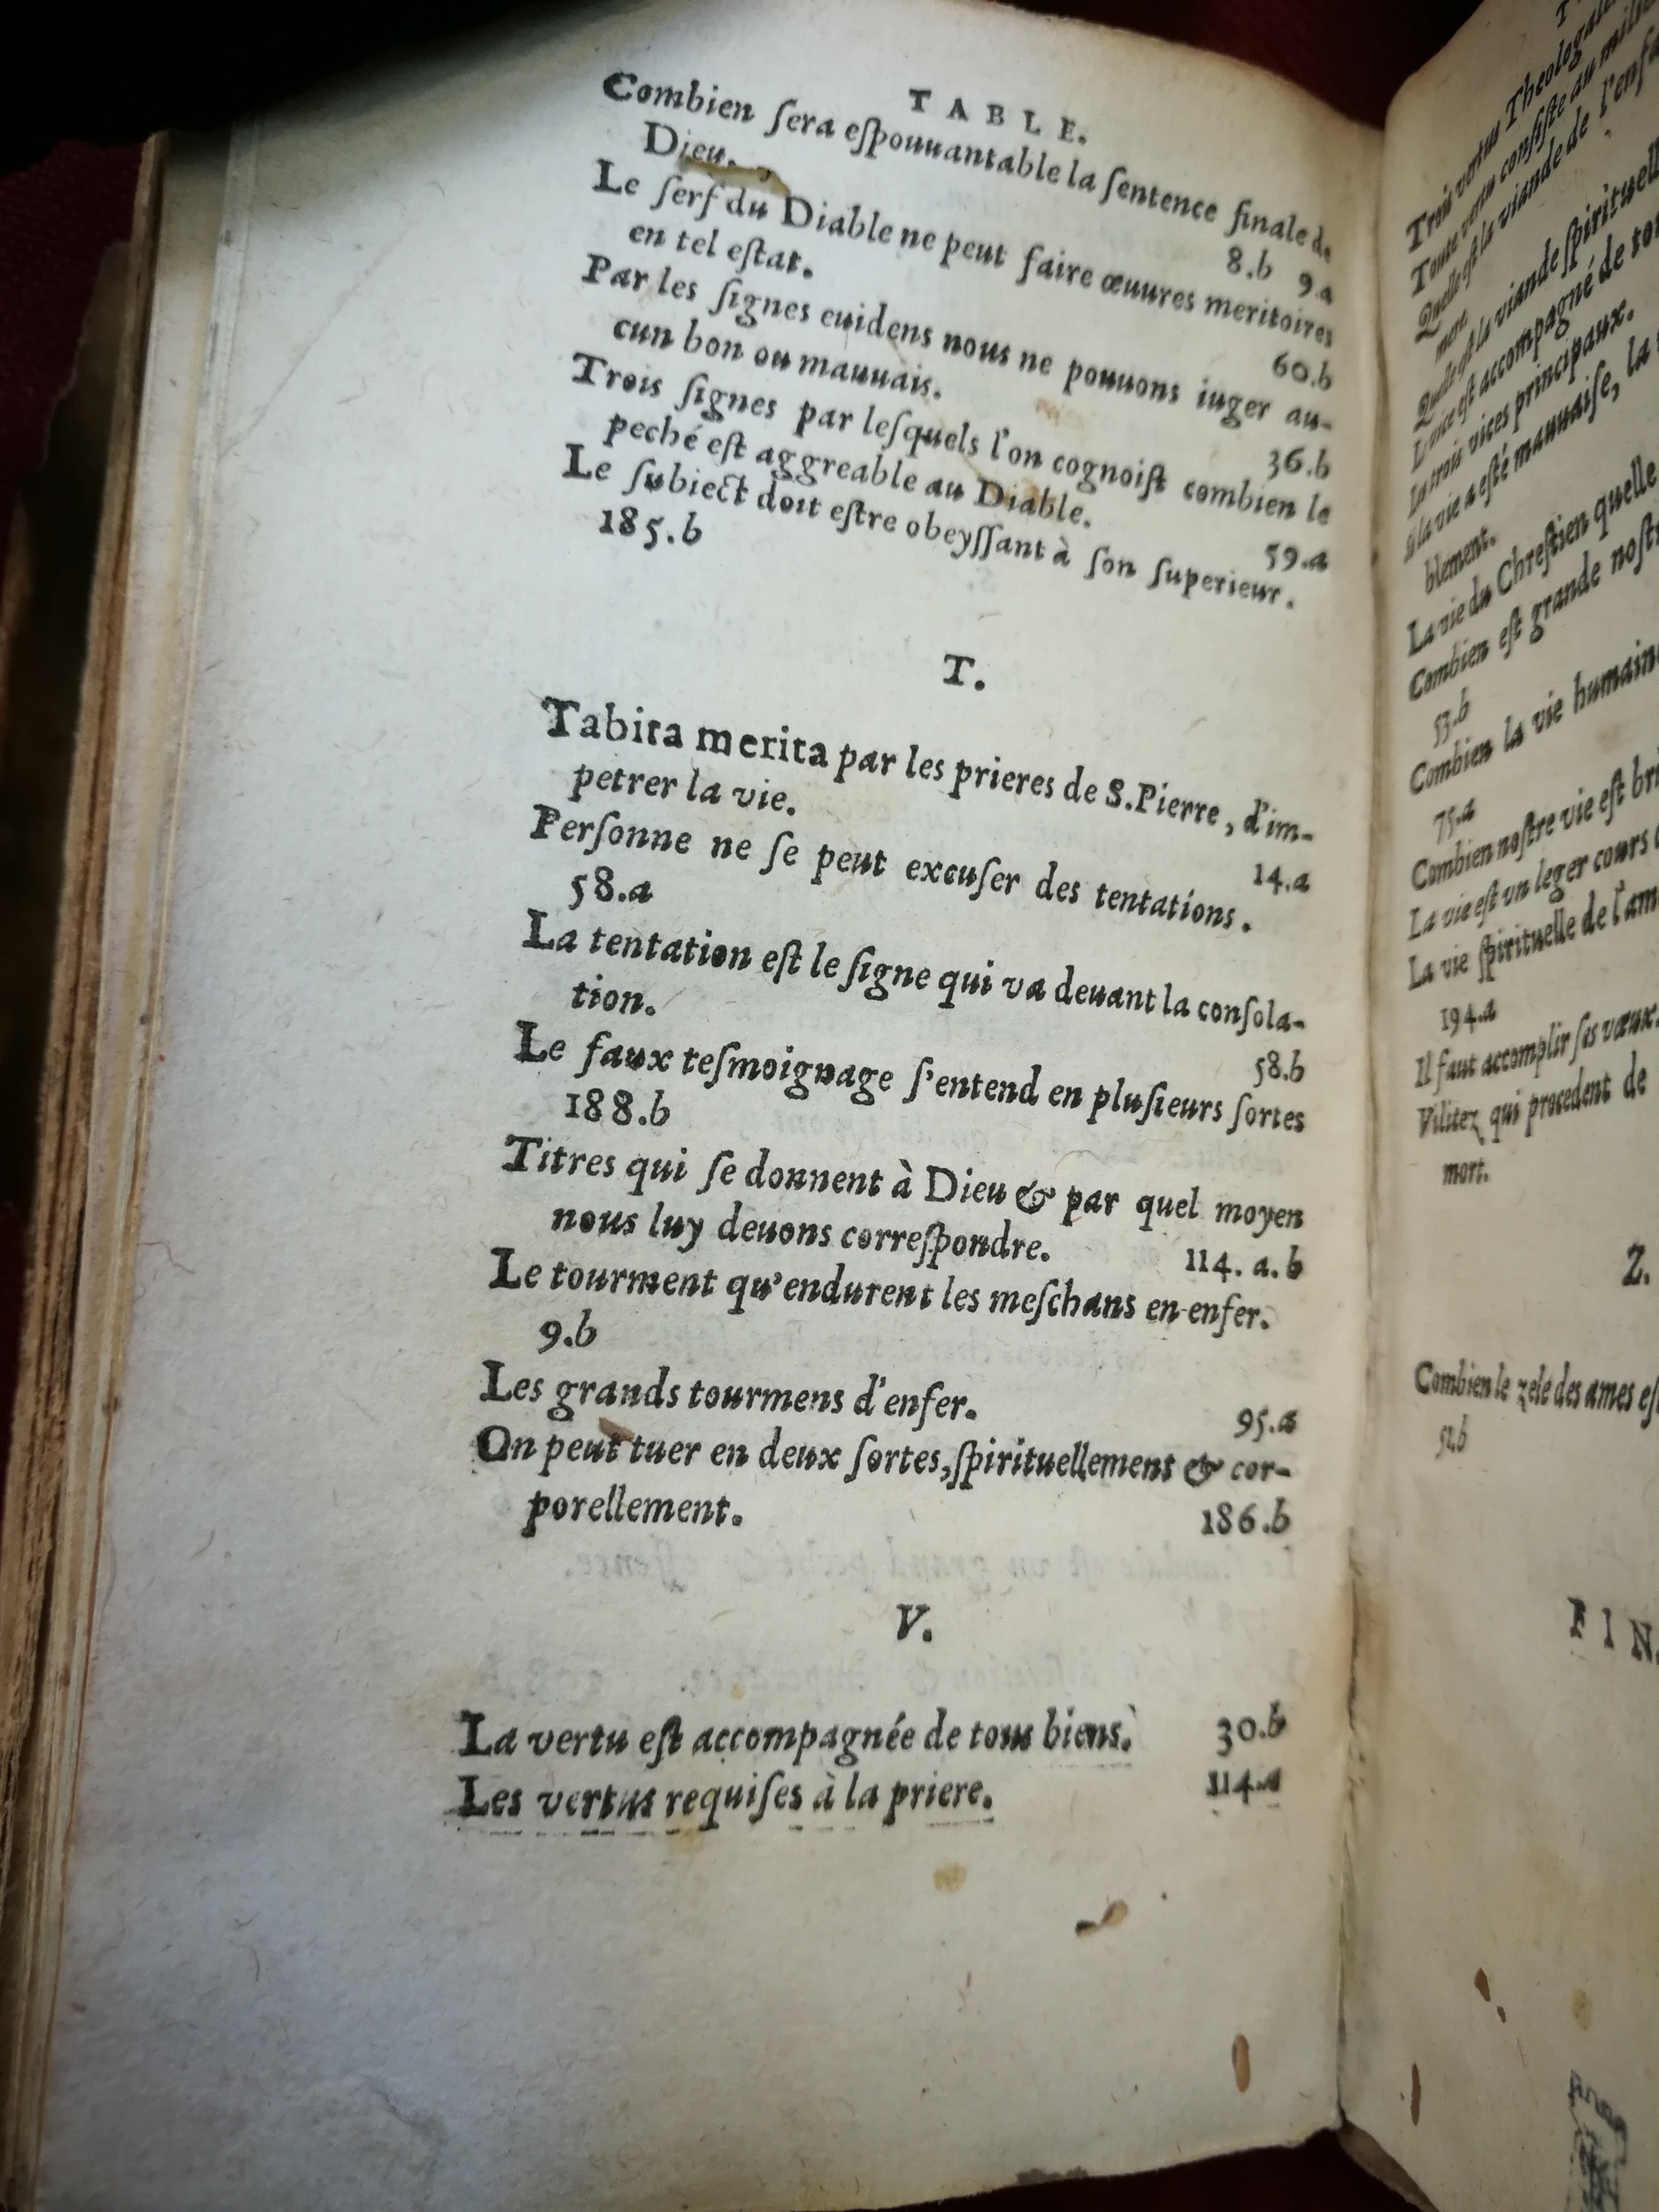 TABLE.
Combien ſera eſpouuantable la ſentence finale de
Dieu. 8.b 9.a
Le ſerf du Diable ne peut faire œuures meritoires
en tel eſtat. 60.b
Par les ſignes euidens nous ne pouuons iuger au-
cun bon ou mauuais. 36.b
Trois ſignes par leſquels l'on cognoiſt combien le
peché eſt aggreable au Diable. 59.a
Le ſubiect doit eſtre obeyſſant à ſon ſuperieur.
185.b
T.
Tabita merita par les prieres de S.Pierre, d'im-
petrer la vie. 14.a
Perſonne ne ſe peut excuſer des tentations.
58.a
La tentation eſt le ſigne qui va deuant la conſola-
tion. 58.b
Le faux teſmoignage ſ'entend en pluſieurs ſortes
188.b
Titres qui ſe donnent à Dieu & par quel moyen
nous luy deuons correſpondre. 114. a. b
Le tourment qu'endurent les meſchans en enfer.
9.b
Les grands tourmens d'enfer. 95.a
On peut tuer en deux ſortes, ſpirituellement & cor-
porellement. 186.b
V.
La vertu eſt accompagnée de tous biens. 30.b
Les vertus requiſes à la priere. 114.a
Trois vertus Theologales
Toute vertu conſiſte au milieu
Quelle eſt la viande de l'enfa
mere
Quelle eſt la viande ſpirituell
Le vice eſt accompagné de to
La trois vices principaux.
Si la vie a eſté mauuaiſe, la
blement.
La vie du Chreſtien quelle
Combien eſt grande noſt
53.b
Combien la vie humain
75.a
Combien noſtre vie eſt bri
La vie eſt vn leger cours
La vie ſpirituelle de l'am
194.a
Il faut accomplir ſes vœux.
Vilitez qui procedent de
mort.
Z.
Combien le zele des ames eſ
51.b
FIN.